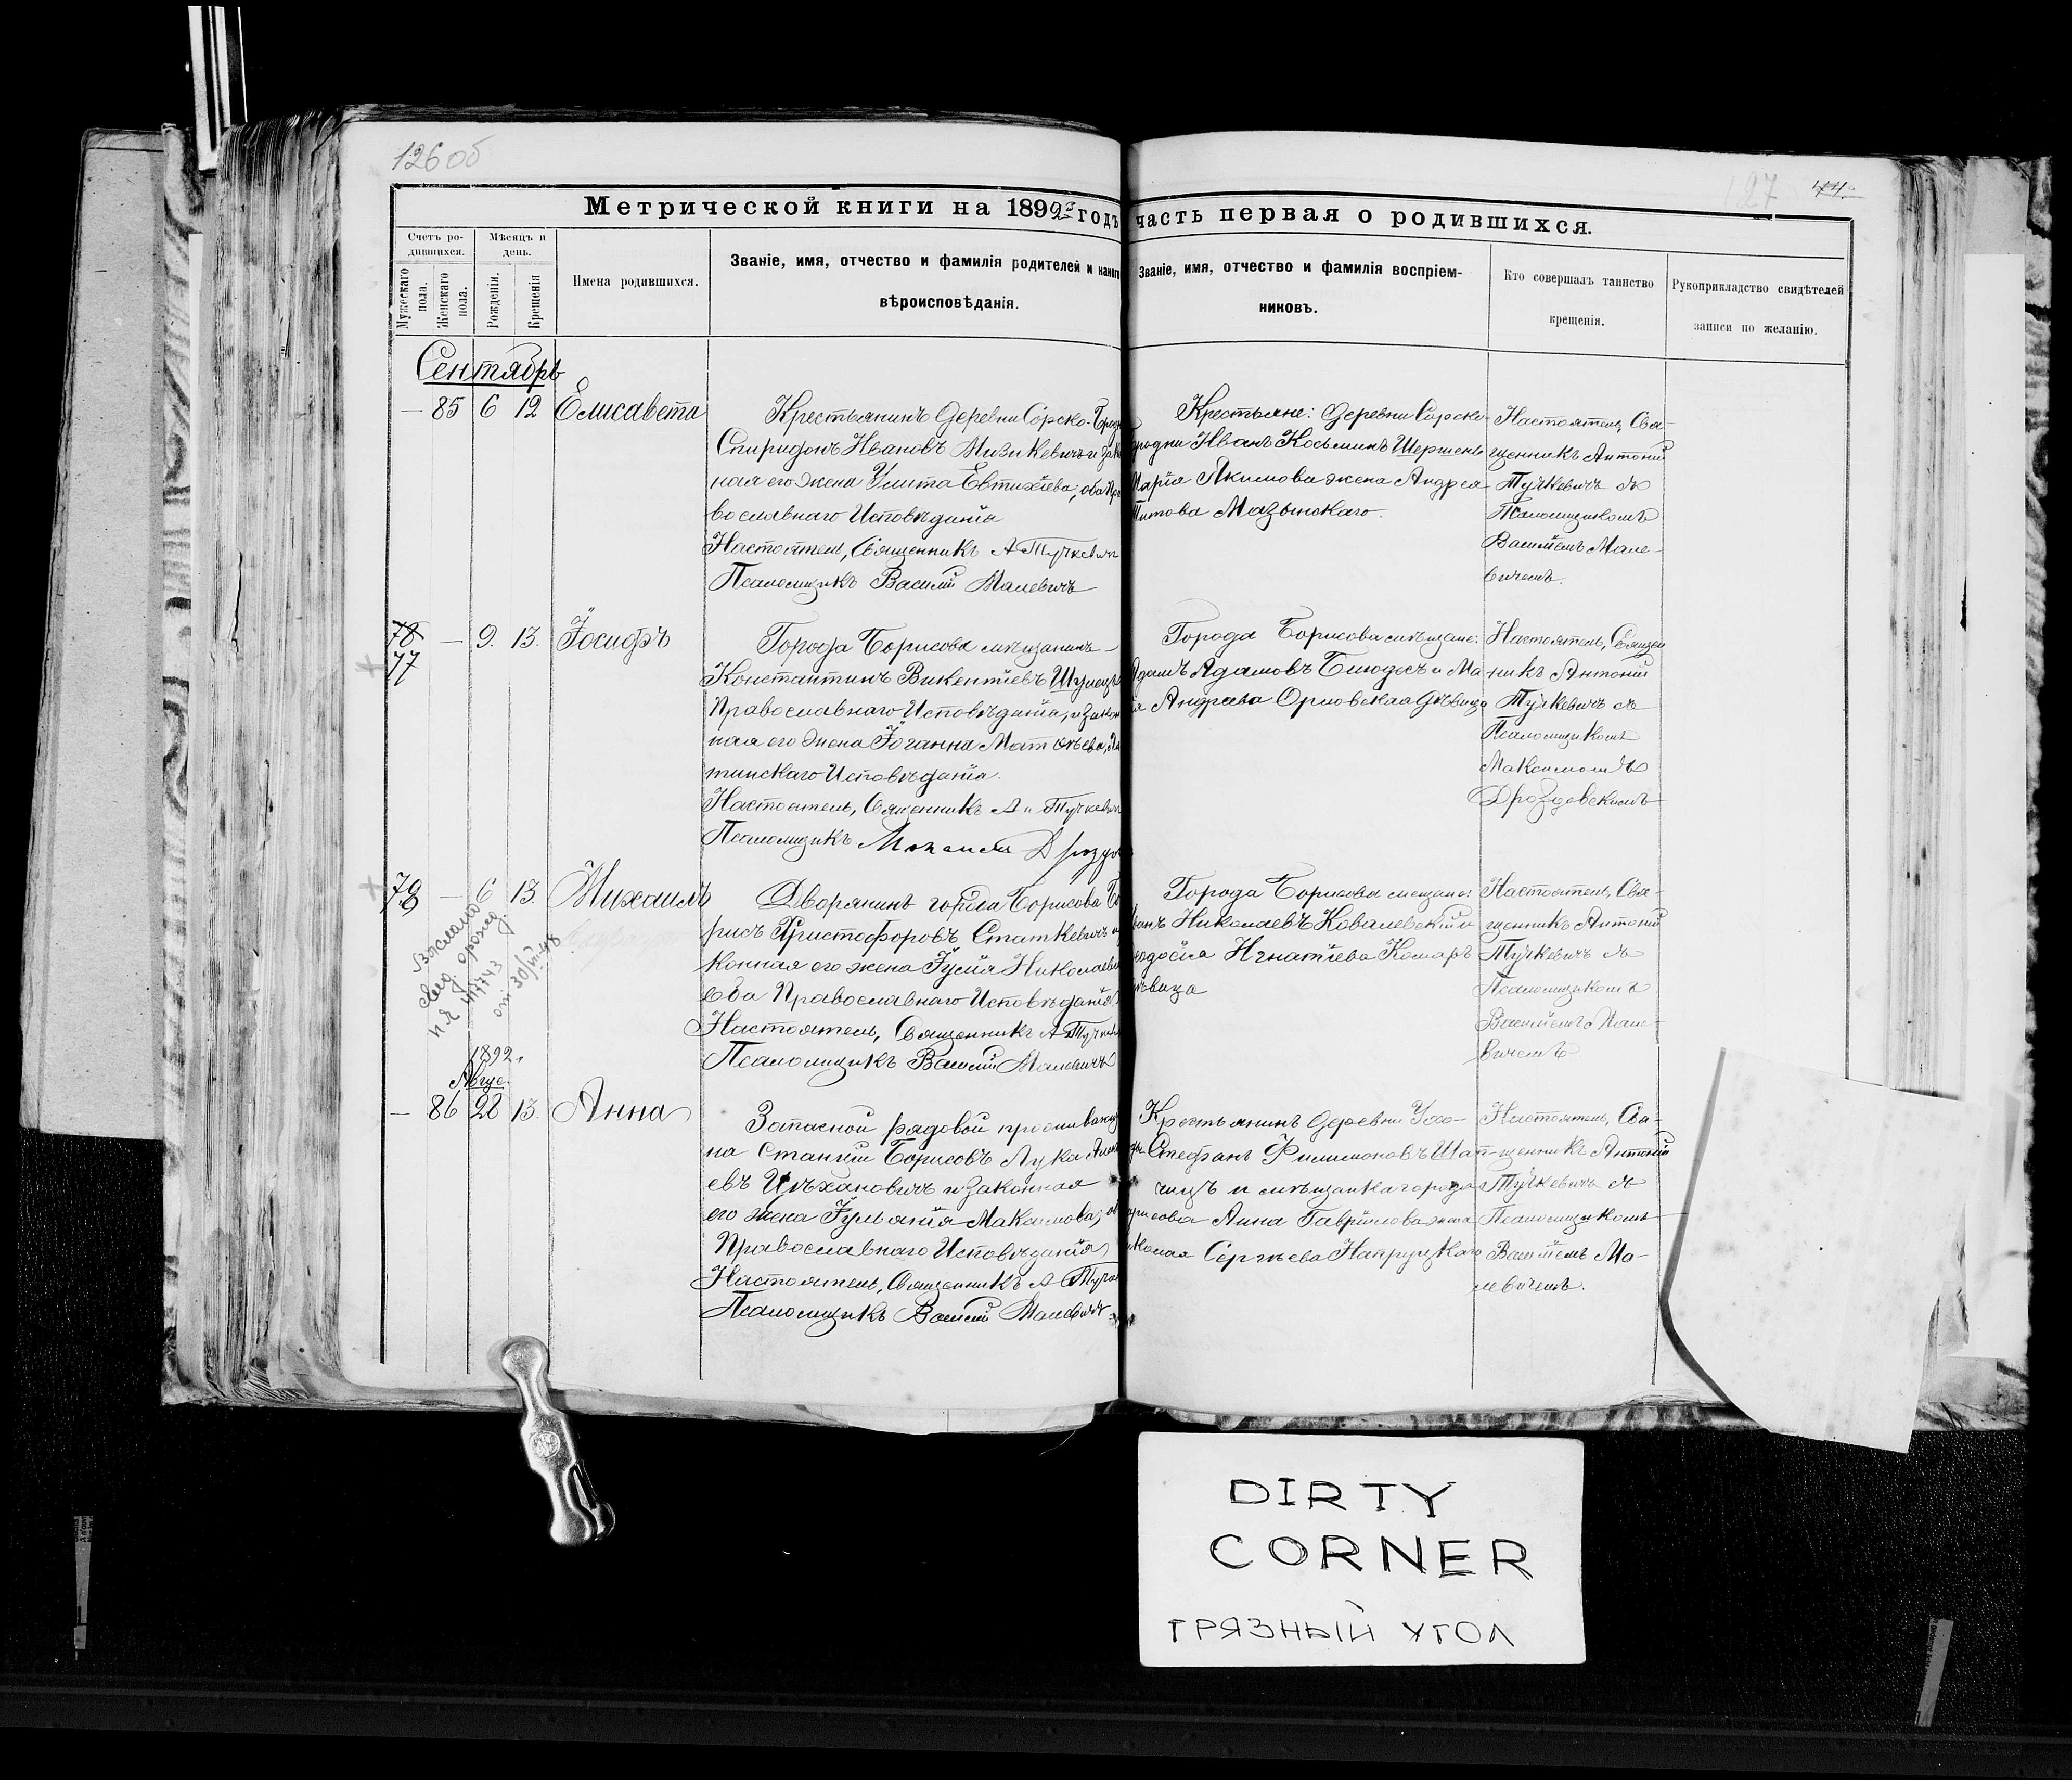 126 об
127
44.
Метрической книги на 1892й годъ часть первая о родившихся.
Счетъ родившихся.
Мужескаго пола.
Женскаго пола.
Мѣсяцъ и день.
Рожденія.
Крещенія
Имена родившихся.
Званіе, имя, отчество и фамилія родителей и какого
вѣроисповѣданія.
Званіе, имя, отчество и фамилія воспріем-
никовъ.
Кто совершалъ таинство
крещенія.
Рукоприкладство свидѣтелей
записи по желанію.
Сентябрь
— 85 6 12 Елисавета
Крестьянинъ деревни
Спиридонъ Ивановъ Мизикевичъ и зак
ная его жена Улита Евтихіева, оба Пра
вославнаго Исповѣданія
Настоятель, Священникъ А Тучкевич
Псаломщикъ Василій Малевичъ
Крестьяне: деревни
Иванъ Косьминъ Шершень
Марія Якимова жена Андрея
Титова Мазынскаго.
Настоятель, Свя-
щенникъ Антоній
Тучкевичъ съ
Псаломщикомъ
Василіемъ Мале-
вичемъ.
78 — 9. 13. Іосифъ
77
Города Борисова мѣщанинъ
Константинъ Викентіевъ
Православнаго Исповѣданія, и закон
ная его жена Іоганна Матвѣева, Ла
тинскаго Исповѣданія.
Настоятель, Священникъ А Тучкевич
Псаломщикъ
Города Борисова мѣщане:
Адамъ Адамовъ и Ма
ія Андреева Орловская дѣвица
Настоятель, Священ
никъ Антоній
Тучкевичъ съ
Псаломщикомъ
Максимомъ
Дроздовскимъ
78 — 6 13. Михаилъ
Выслано
свид. о рожд
от 30/VII-48
Дворянинъ города Борисова Бо
рисъ Христофоровъ Статкевичъ и
конная его жена Юлія Николаева
оба Православнаго Исповѣданія
Настоятель, Священникъ А Тучкев
Псаломщикъ Василій Малевичъ
Города Борисова мещане:
ванъ Николаевъ Ковалевскій и
еодосія Игнатіева Комаръ
ѣвица
Настоятель, Свя-
щенникъ Антоній
Тучкевичъ съ
Псаломщикомъ
Василіемъ Мале-
вичемъ
1892.
Авгус.
— 86 28 13. Анна
Запасной рядовой проживающ
на Станціи Борисовъ Лука
евъ Цѣхановичъ и законная
его жена Іульянія Максимова; об
Православнаго Исповѣданія
Настоятель, Священникъ А Тучк
Псаломщикъ Василій Малевичъ
Крестьянинъ деревни Ухо-
ды Стефанъ Филимоновъ Шап-
чицъ и мѣщанка города
орисова Анна Гаврилова жена
иколая Сергѣева Напруцкаго
Настоятель, Свя-
щенникъ Антоній
Тучкевичъ съ
Псаломщикомъ
Василіемъ Ма-
левичемъ.
DIRTY
CORNER
ГРЯЗНЫЙ УГОЛ